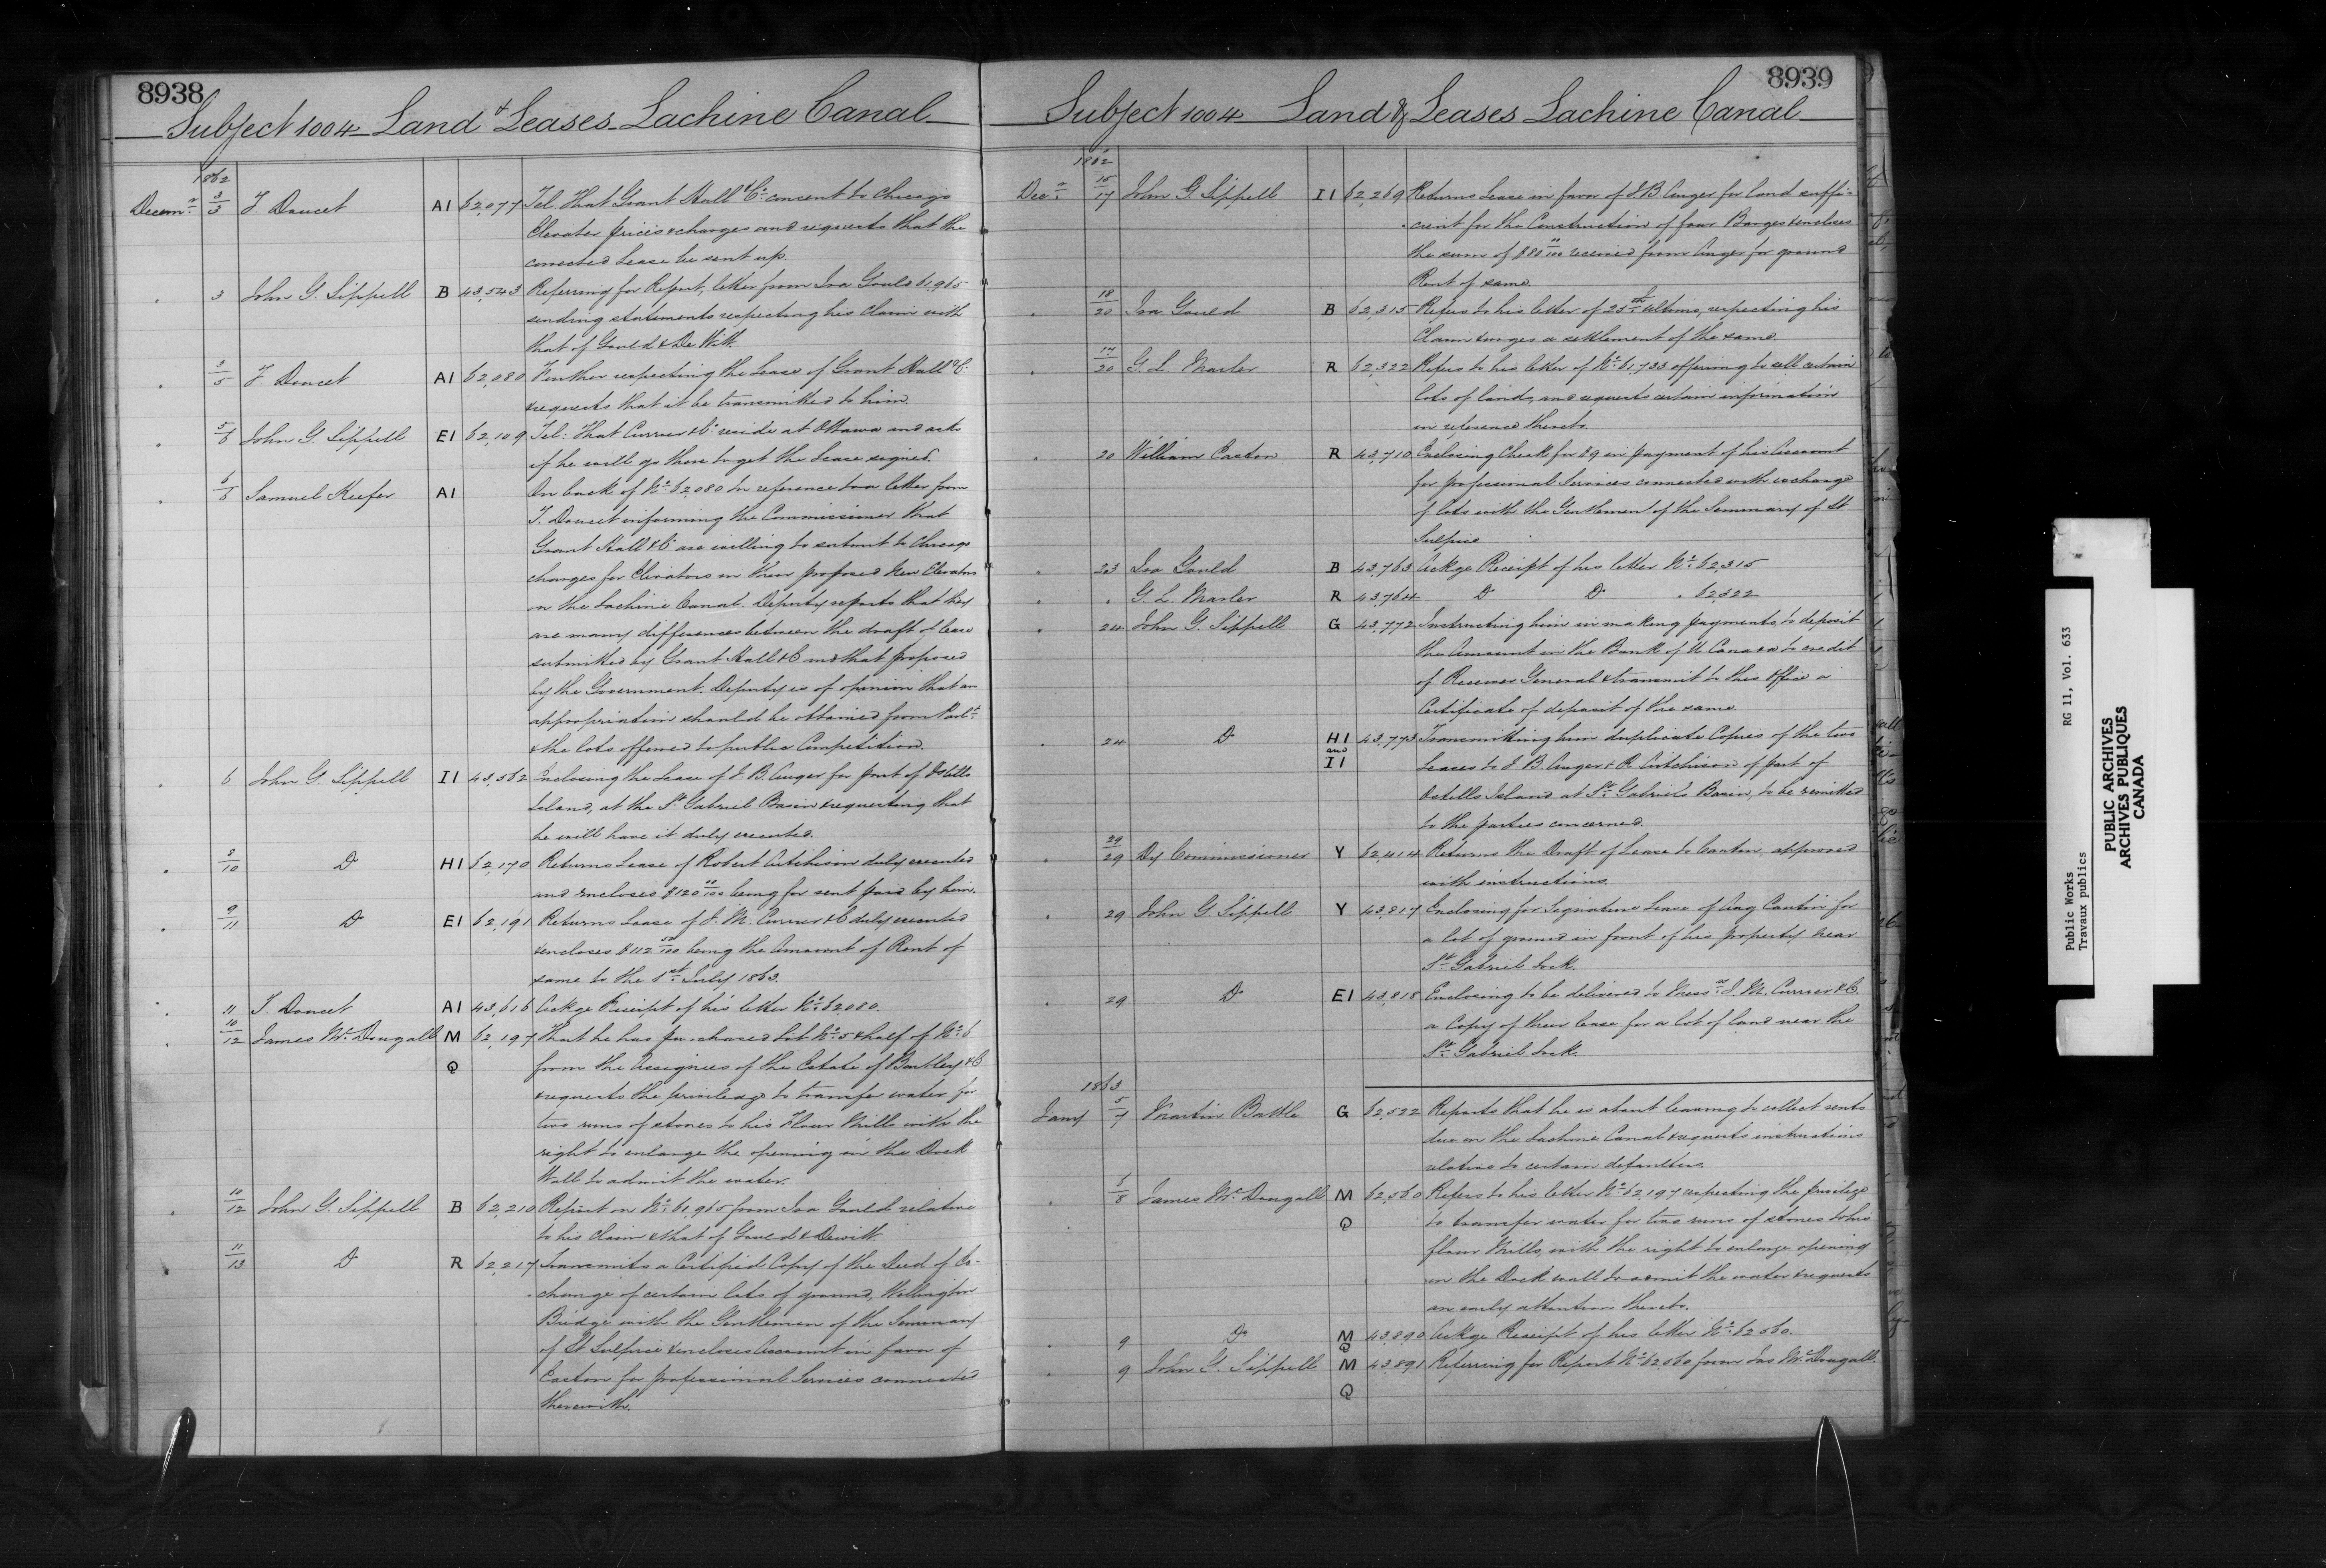 8938
Subject 1004 Land & Leases Lachine Canal
1862
Decem.r 3/3 T. Doucet A1 62,077 Tel. That Grant Hall & Co. consent to Chicago
Elevator prices & charges and requests that the
corrected Lease be sent up.
" 3 John G. Sippell B 43,543 Referring for Report, letter from Ira Gould 61,965
sending statements respecting his Claim with
that of Gould & De Witt.
" 3/5 T. Doucet A1 62,080 Further respecting the Lease of Grant Hall & Co.
& requests that it be transmitted to him.
" 5/6 John G. Sippell E1 62,109 Tel: That Currier & Co. reside at Ottawa and asks
if he will go there to get the Lease signed.
" 6/6 Samuel Keefer A1 On back of No. 62,080 In reference to a letter from
T. Doucet informing the Commissioner that
Grant Hall & Co. are willing to submit to Chicago
charges for Elevators in their proposed New Elevator
on the Lachine Canal. Deputy reports that they
are many differences between the draft of lease
submitted by Grant Hall & Co and that proposed
by the Government. Deputy is of opinion that an
appropriation should be obtained from Parlt.
& the lots offered to public Competition.
" 6 John G. Sippell I1 43,562 Enclosing the Lease of J. B. Auger for part of Ostells
Island, at the St. Gabriel Basin & requesting that
he will have it duly executed.
" 8/10 Do H1 62,170 Returns Lease of Robert Aitchison duly executed
and encloses $120 00/100 being for rent paid by him.
" 9/11 Do E1 62,191 Returns Lease of J. M. Currier & Co duly executed
& encloses $112 50/100 being the Amount of Rent of
same to the 1st July 1863.
" 11 T. Doucet A1 43,616 Ackge Receipt of his letter No. 62080.
" 10/12 James Mc. Dougall M 62,197 That he has purchased Lot No. 5 & half of No. 6
Q from the Assignees of the Estate of Bartley & Co
& requests the privilege to transfer water for
two runs of stones to his Flour Mills with the
right to enlarge the opening in the Dock
Wall to admit the water.
" 10/12 John G. Sippell B 62,210 Report on No. 61,965 from Ira Gould relative
to his Claim & that of Gould & Dewitt.
11/13 Do R 62,217 Transmits a Certified Copy of the Deed of Ex-
change of certain lots of ground, Wellington
Bridge with the Gentlemen of the Seminary
of St Sulpice & encloses Account in favor of
Easton for professional Services connected
therewith.
8939
Subject 1004 Land & Leases Lachine Canal
1862
Decr. 15/17 John G. Sippell I1 62,269 Returns Lease in favor of J. B. Auger for land suffi-
cient for the Construction of four Barges & encloses
the sum of $80 00/100 received from Auger for ground
Rent of same.
" 18/20 Ira Gould B 62,315 Refers to his letter of 25th Ultimo, respecting his
Claim & urges a settlement of the same.
" 17/20 G. L. Marler R 62,322 Refers to his letter of No. 61,733 offering to sell certain
lots of lands, and requests certain information
in reference thereto.
" 20 William Easton R 43,710 Enclosing Check for £9 in payment of his Account
for professional Services connected with exchange
of lots with the Gentlemen of the Seminary of St
Sulpice
" 23 Ira Gould B 43,763 Ackge Receipt of his letter No. 62,315
" " G. L. Marler R 43,764 Do Do " 62,322
" 24 John G. Sippell G 43,772 Instructing him in making payments, to deposit
the Amount in the Bank of U Canada to credit
of Receiver General & transmit to this Office a
Certificate of deposit of the same.
" 24 Do H1 and I1 43,773 Transmitting him duplicate Copies of the two
Leases to J. B. Auger & R. Aitchison of part of
Ostells Island at St. Gabriel's Basin, to be remitted
to the parties concerned.
" 29/29 Dy Commissioner Y 62,414 Returns the Draft of Lease to Cantin, approved
with instructions.
" 29 John G Sippell Y 43,817 Enclosing for Signature Lease of Aug Cantin for
a lot of ground in front of his property near
St. Gabriel Lock.
" 29 Do E1 43,818 Enclosing to be delivered to Messrs. J. M. Currier & Co.
a Copy of their lease for a lot of land near the
St. Gabriel Lock.
1863
Jany 5/7 Martin Battle G 62,522 Reports that he is about leaving to collect rents
due on the Lachine Canal & requests instructions
relative to certain defaulters.
" 8/8 James Mc. Dougall M 62,560 Refers to his letter No. 62,197 respecting the privilege
Q to transfer water for two runs of stones to his
flour Mills, with the right to enlarge opening
in the Dock wall to admit the water & requests
an early attention thereto.
" 9 Do M Q 43,890 Ackge Receipt of his letter No. 62,560.
" 9 John G. Sippell M 43,891 Referring for Report No. 62560 from Jas Mc. Dougall.
Q
Public Works RG 11, Vol. 633
Travaux publics
PUBLIC ARCHIVES
ARCHIVES PUBLIQUES
CANADA